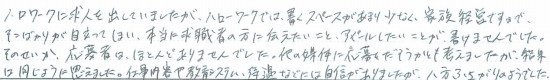 ハロワークに求人を出していましたが、ハローワークでは、書くスペースがあまり少なく、家族経営ですので、
そこばかりが目立ってしまい、本当に求職者の方に伝えたいこと、アピールしたいことが、書けませんでした。
そのせいか、応募者は、ほとんどありませんでした。他の媒体に応募をだそうかとも考えましたが、結果
は同じように思えました。仕事内容や教育システム、待遇などには自信がありましたが、八方ふさがりのようでした